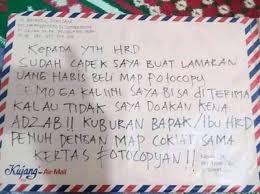 KEPADA YTH HRD
SUDAH CAPEK SAYA BUAT LAMARAN
UANG HABIS BELI MAP FOTOCOPY
SEMOGA KALI INI SAYA BISA DITERIMA
KALAU TIDAK SAYA DOAKAN KENA
ADZAB!! KUBURAN BAPAK/IBU HRD
PENUH DENGAN MAP COKLAT SAMA
KERTAS FOTOCOPYAN!!
Kujang Air Mail